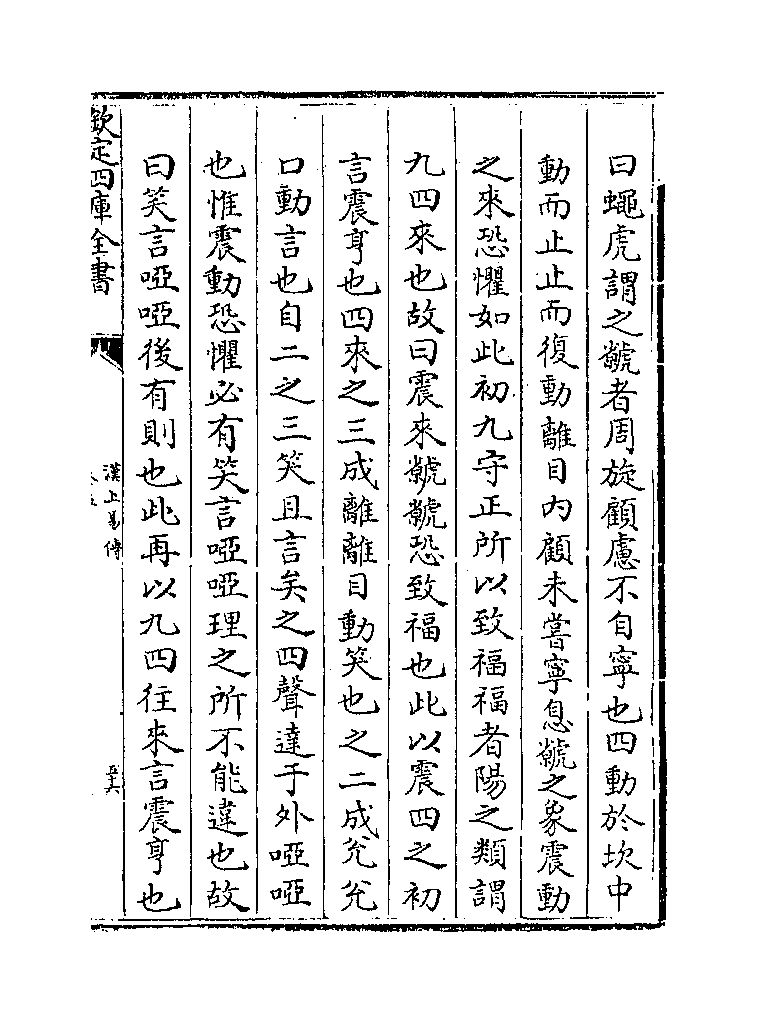 曰蠅虎謂之虩者周旋顧慮不自寧也四動於坎中
動而止止而復動離目内顧未嘗寧息虩之象震動
之來恐懼如此初九守正所以致福福者陽之類謂
九四來也故曰震來虩虩恐致福也此以震四之初
言震亨也四來之三成離離目動笑也之二成兊兊
口動言也自二之三笑且言矣之四聲達于外啞啞
也惟震動恐懼必有笑言啞啞理之所不能違也故
曰笑言啞啞後有則也此再以九四往來言震亨也
欽定四庫全書
漢上易傳